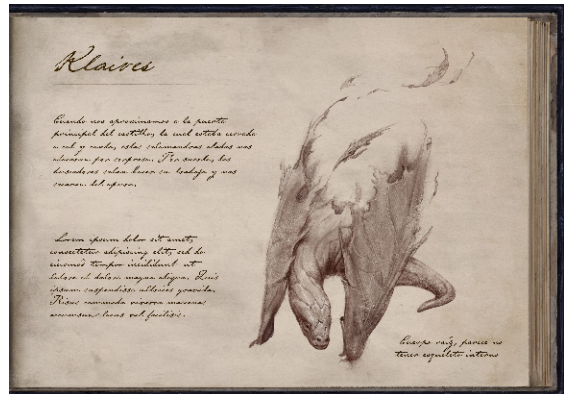 Klaives
Cuando nos aproximamos a la puerta
principal del castillo, la cual estaba cerrada
a cal y canto, estas salamandras aladas nos
atacaron por sorpresa. Por suerte, los
buscadores saben hacer su trabajo y nos
sacaron del apuro.
Lorem ipsum dolor sit amet,
consectetur adipiscing elit, sed do
eiusmod tempor incididunt ut
labore et dolore magna aliqua. Quis
ipsum suspendisse ultrices gravida.
Risus commodo viverra maecenas
accumsan lacus vel facilisis.
Cuerpo parece no
tener esqueleto interno